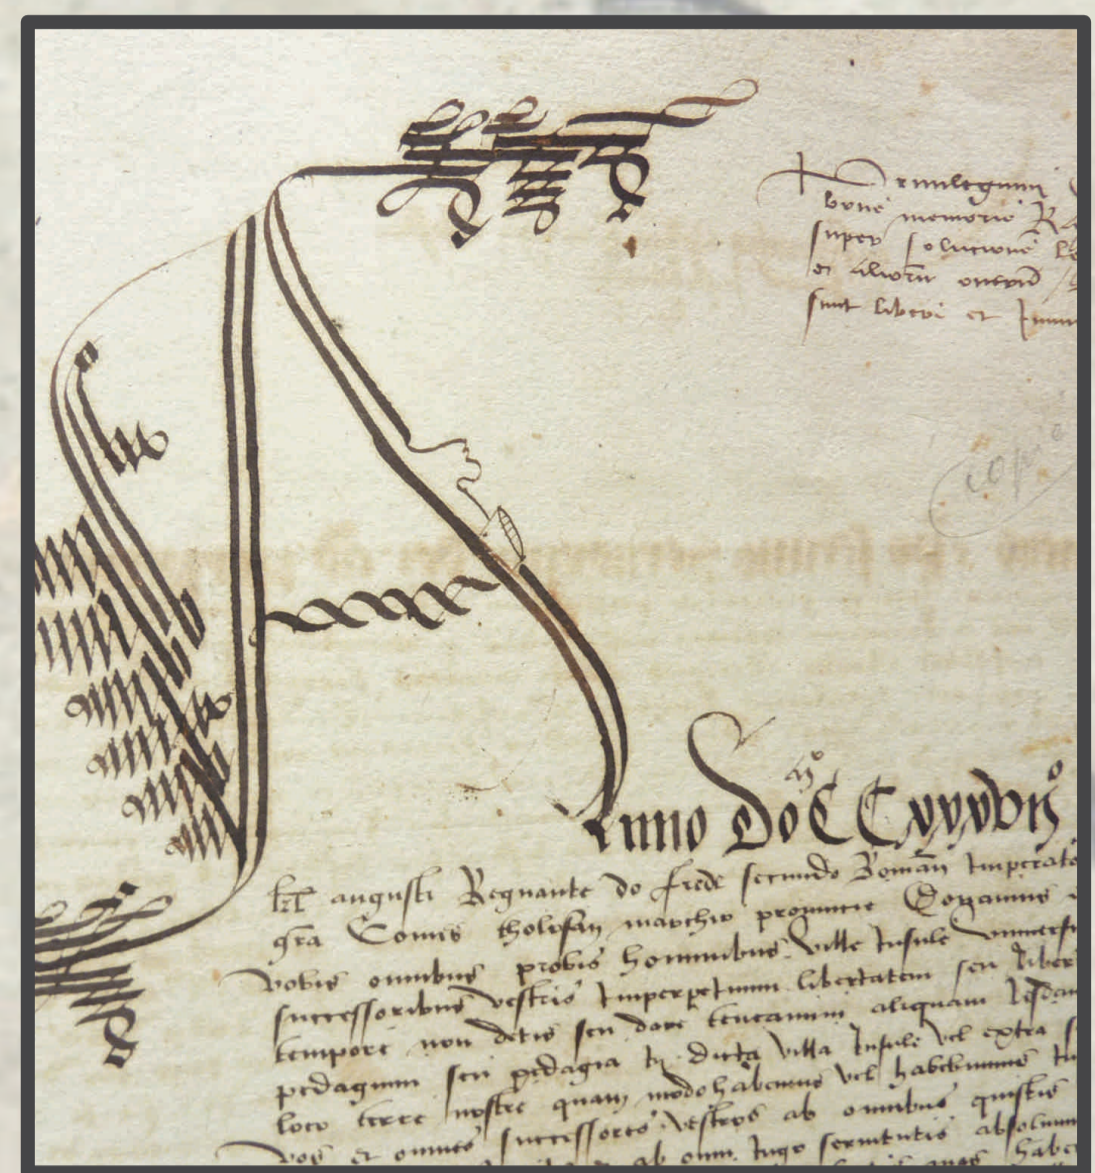 privilegium
bone memorie
super solucione
et aliorũ onerũ
sunt liberi et Imm
copié
Anno Do CCxxxvij
klr augusti Regnante do frede secundo Romañ Imperato
gra Comes tholosañ marchio provincie Donamus
vobis omnibus probis hominibus ville Insule universi
successoribus vestris Imperpetuum libertatem seu liber
tempore non detis seu dare teneamini aliquam lesdam
pedagium seu pedagia In dicta villa Insule vel extra
loco terre nostre quam modo habemus vel habebimus In
vos et omnes successores vestros ab omnibus questis
ab omni Iugo servitutis absolvim